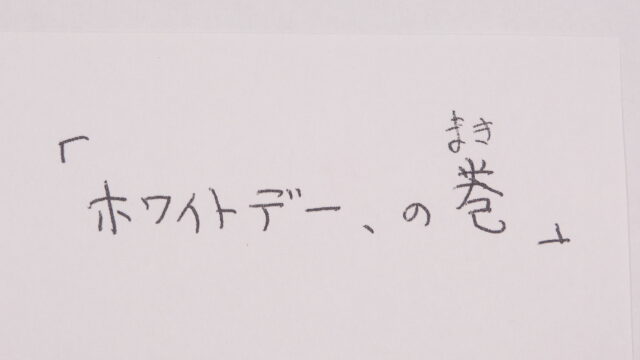 「ホワイトデー、の巻」
まき